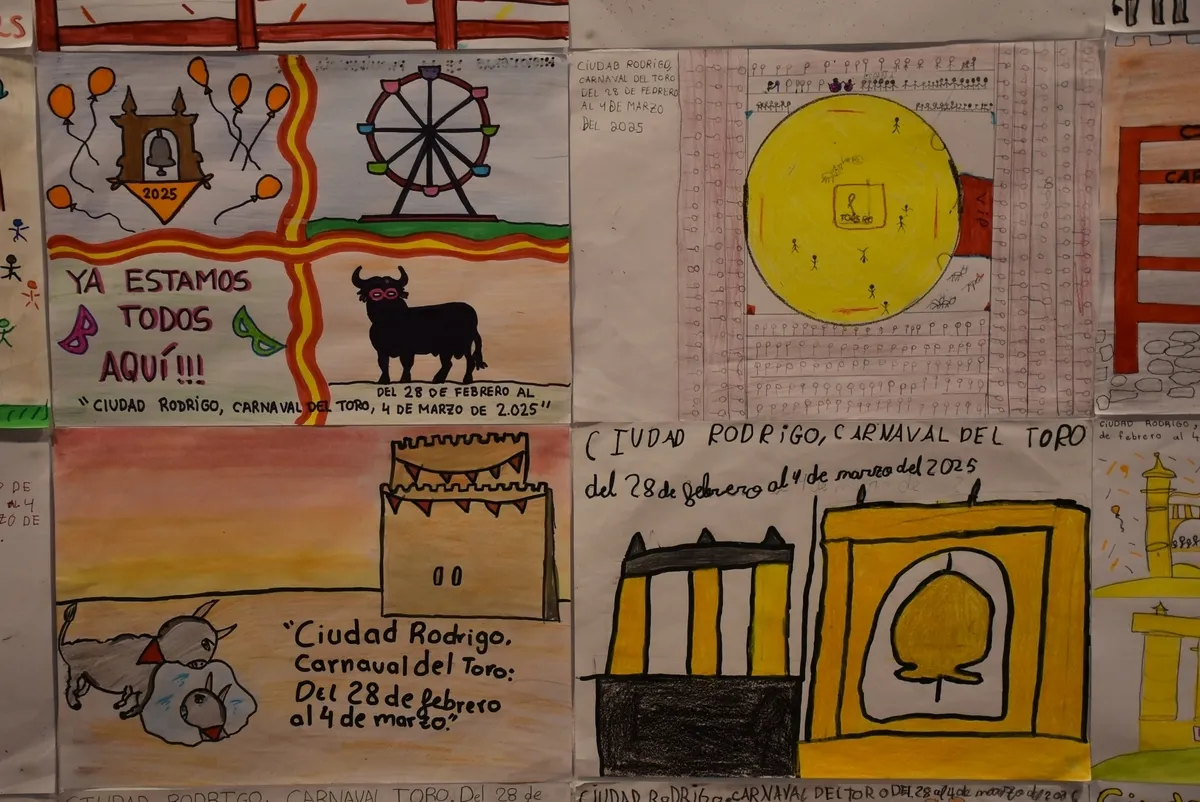 2025
YA ESTAMOS
TODOS
AQUÍ!!!
DEL 28 DE FEBRERO AL
"CIUDAD RODRIGO, CARNAVAL DEL TORO, 4 DE MARZO DE 2.025"
CIUDAD RODRIGO,
CARNAVAL DEL TORO
DEL 28 DE FEDRERO
AL 4 DE MARZO
DEL 2025
TORERO
VIP
"Ciudad Rodrigo.
Carnaval del Toro:
Del 28 de febrero
al 4 de marzo."
CIUDAD RODRIGO, CARNAVAL DEL TORO
del 28 de febrero al 4 de marzo del 2025
CIUDAD RODRIGO,
de febrero al 4
DE
AL 4
ZO DE
CIUDAD RODRIGO, CARNAVAL TORO. Del 28 de
CIUDAD RODRIGO, CARNAVAL DEL TORO DEL 28 al 4 de marzo del